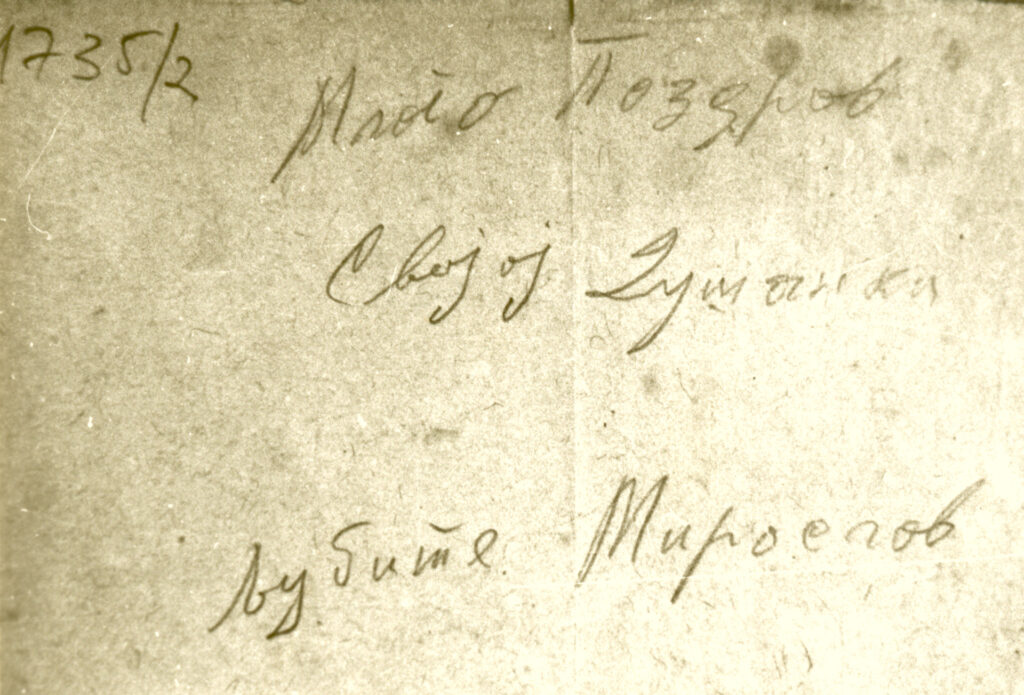 1735/2
Поздров
Својој Душанки
Љубите Мирослов